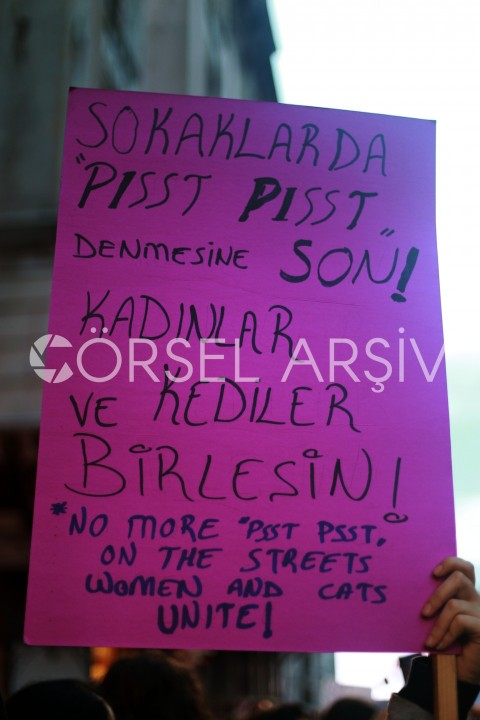 SOKAKLARDA
"PISST PISST"
DENMESİNE SON!
KADINLAR
GÖRSEL ARŞİV
VE KEDİLER
BİRLESİN!
*NO MORE "PSST PSST"
ON THE STREETS
WOMEN AND CATS
UNITE!